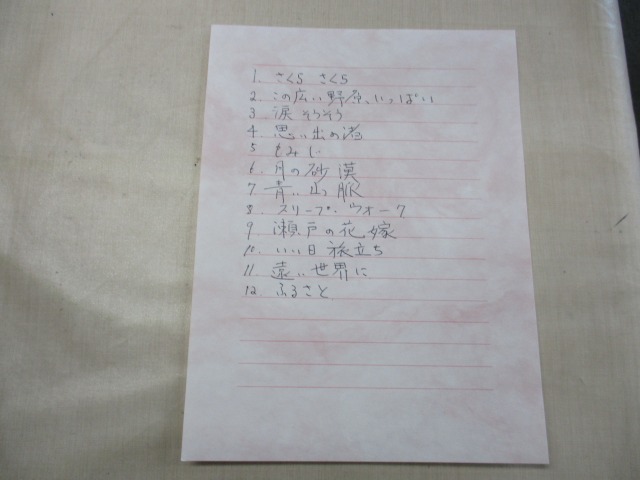 1. さくら さくら
2. この広い野原、いっぱい
3 涙そうそう
4. 思い出の渚
5 もみじ
6. 月の砂漠
7 青い山脈
8. スリープ・ウォーク
9 瀬戸の花嫁
10. いい日旅立ち
11. 遠い世界に
12. ふるさと